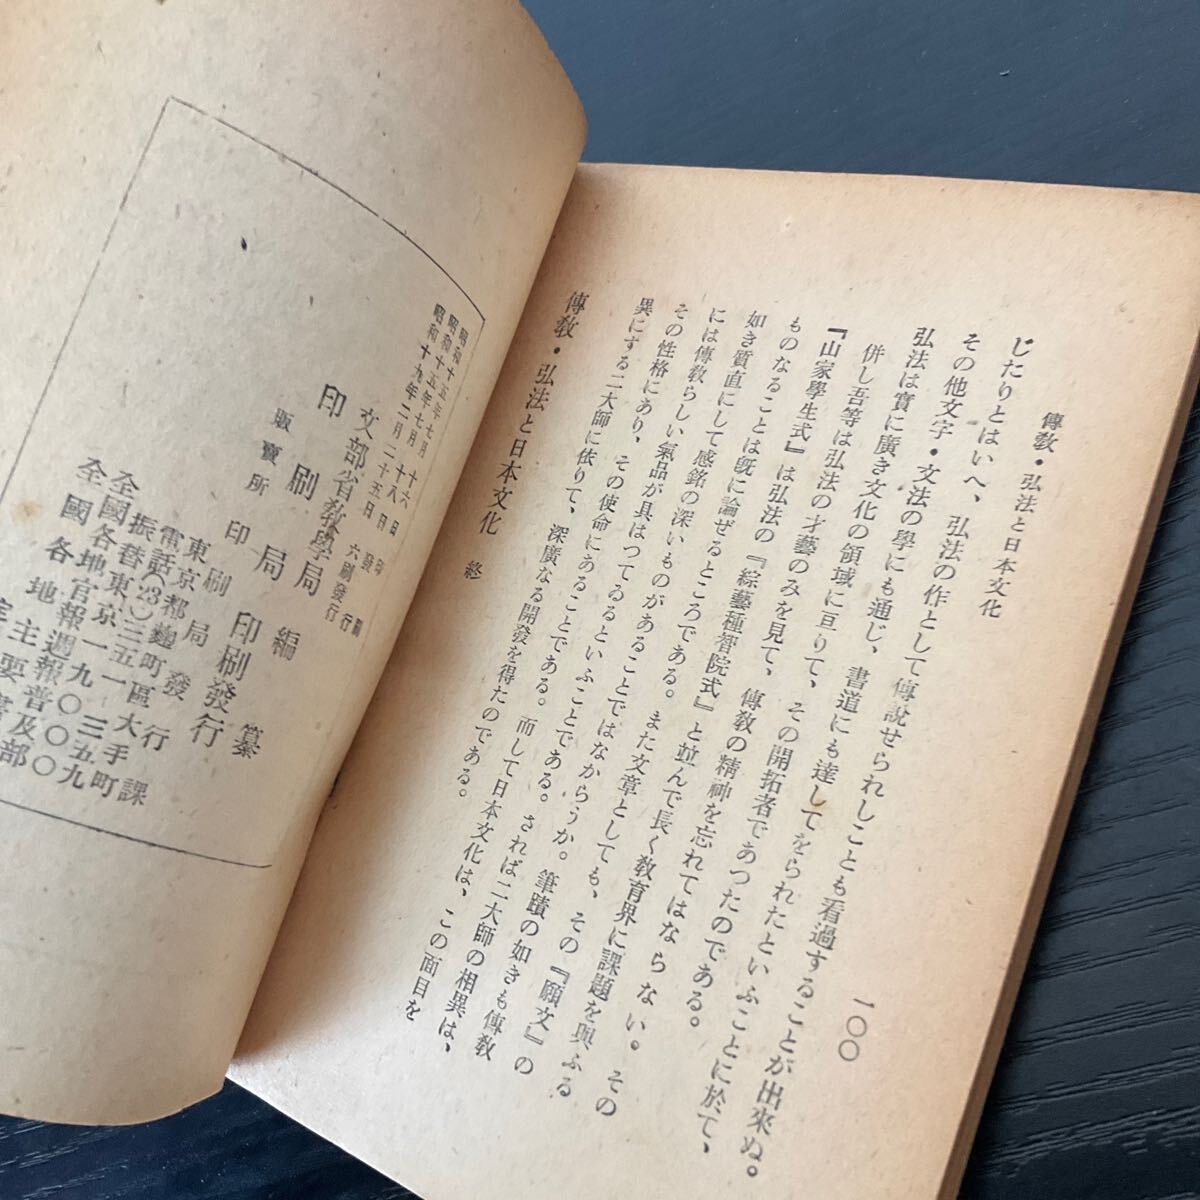 傳敎・弘法と日本文化
一〇〇
じたりとはいへ、弘法の作として傳説せられしことも看過することが出來ぬ。
その他文字・文法の學にも通じ、書道にも達してをられたといふことに於て、
弘法は實に廣き文化の領域に亘りて、その開拓者であつたのである。
併し吾等は弘法の才藝のみを見て、傳敎の精神を忘れてはならない。その
『山家學生式』は弘法の『綜藝種智院式』と竝んで長く敎育界に課題を與ふる
ものなることは旣に論ぜるところである。また文章としても、その『願文』の
如き質直にして感銘の深いものがあることではなからうか。筆蹟の如きも傳敎
には傳敎らしい氣品が具はつてゐるといふことである。されば二大師の相異は、
その性格にあり、その使命にあることである。而して日本文化は、この面目を
異にする二大師に依りて、深廣なる開發を得たのである。
傳敎・弘法と日本文化 終
昭和十五年七月十六日印刷
昭和十五年七月十八日發行
昭和十九年二月二十五日六刷發行
文部省敎學局編纂
印刷局印刷發行
販賣所
東京都麴町區大手町
印刷局發行課